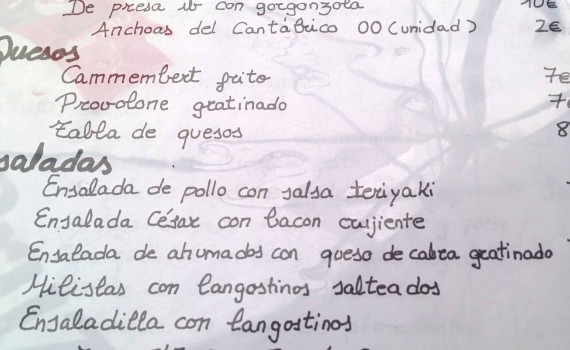 De presa ib con gorgonzola 10€
Anchoas del Cantábrico 00 (unidad) 2€
Quesos
Cammembert frito 7€
Provolone gratinado 7€
Tabla de quesos 8
saladas
Ensalada de pollo con salsa teriyaki
Ensalada César con bacon crujiente
Ensalada de ahumados con queso de cabra gratinado
con langostinos salteados
Ensaladilla con langostinos